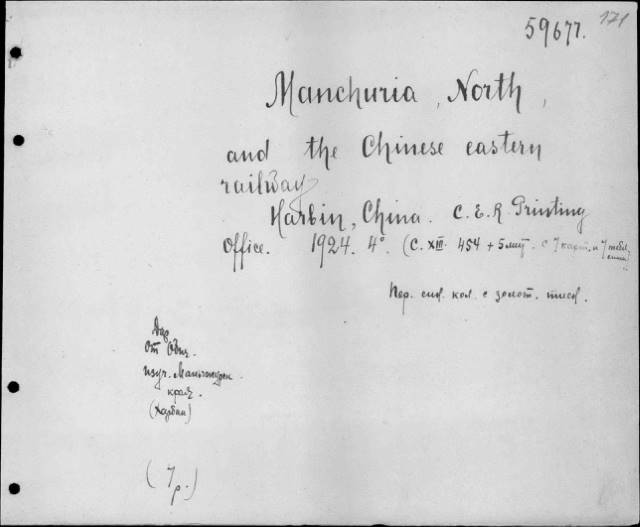 171
59677.
Manchuria, North,
and the Chinese eastern
railway
Harbin, China. C.E.R Printing
Office. 1924. 4°. (С. XIII. 454 + 5 с 7 карт. и 7
Пер. кол. с золот. тисн.
Дар
От Общ.
изуч. Маньчжурск.
края.
(Харбин)
(7
р.)